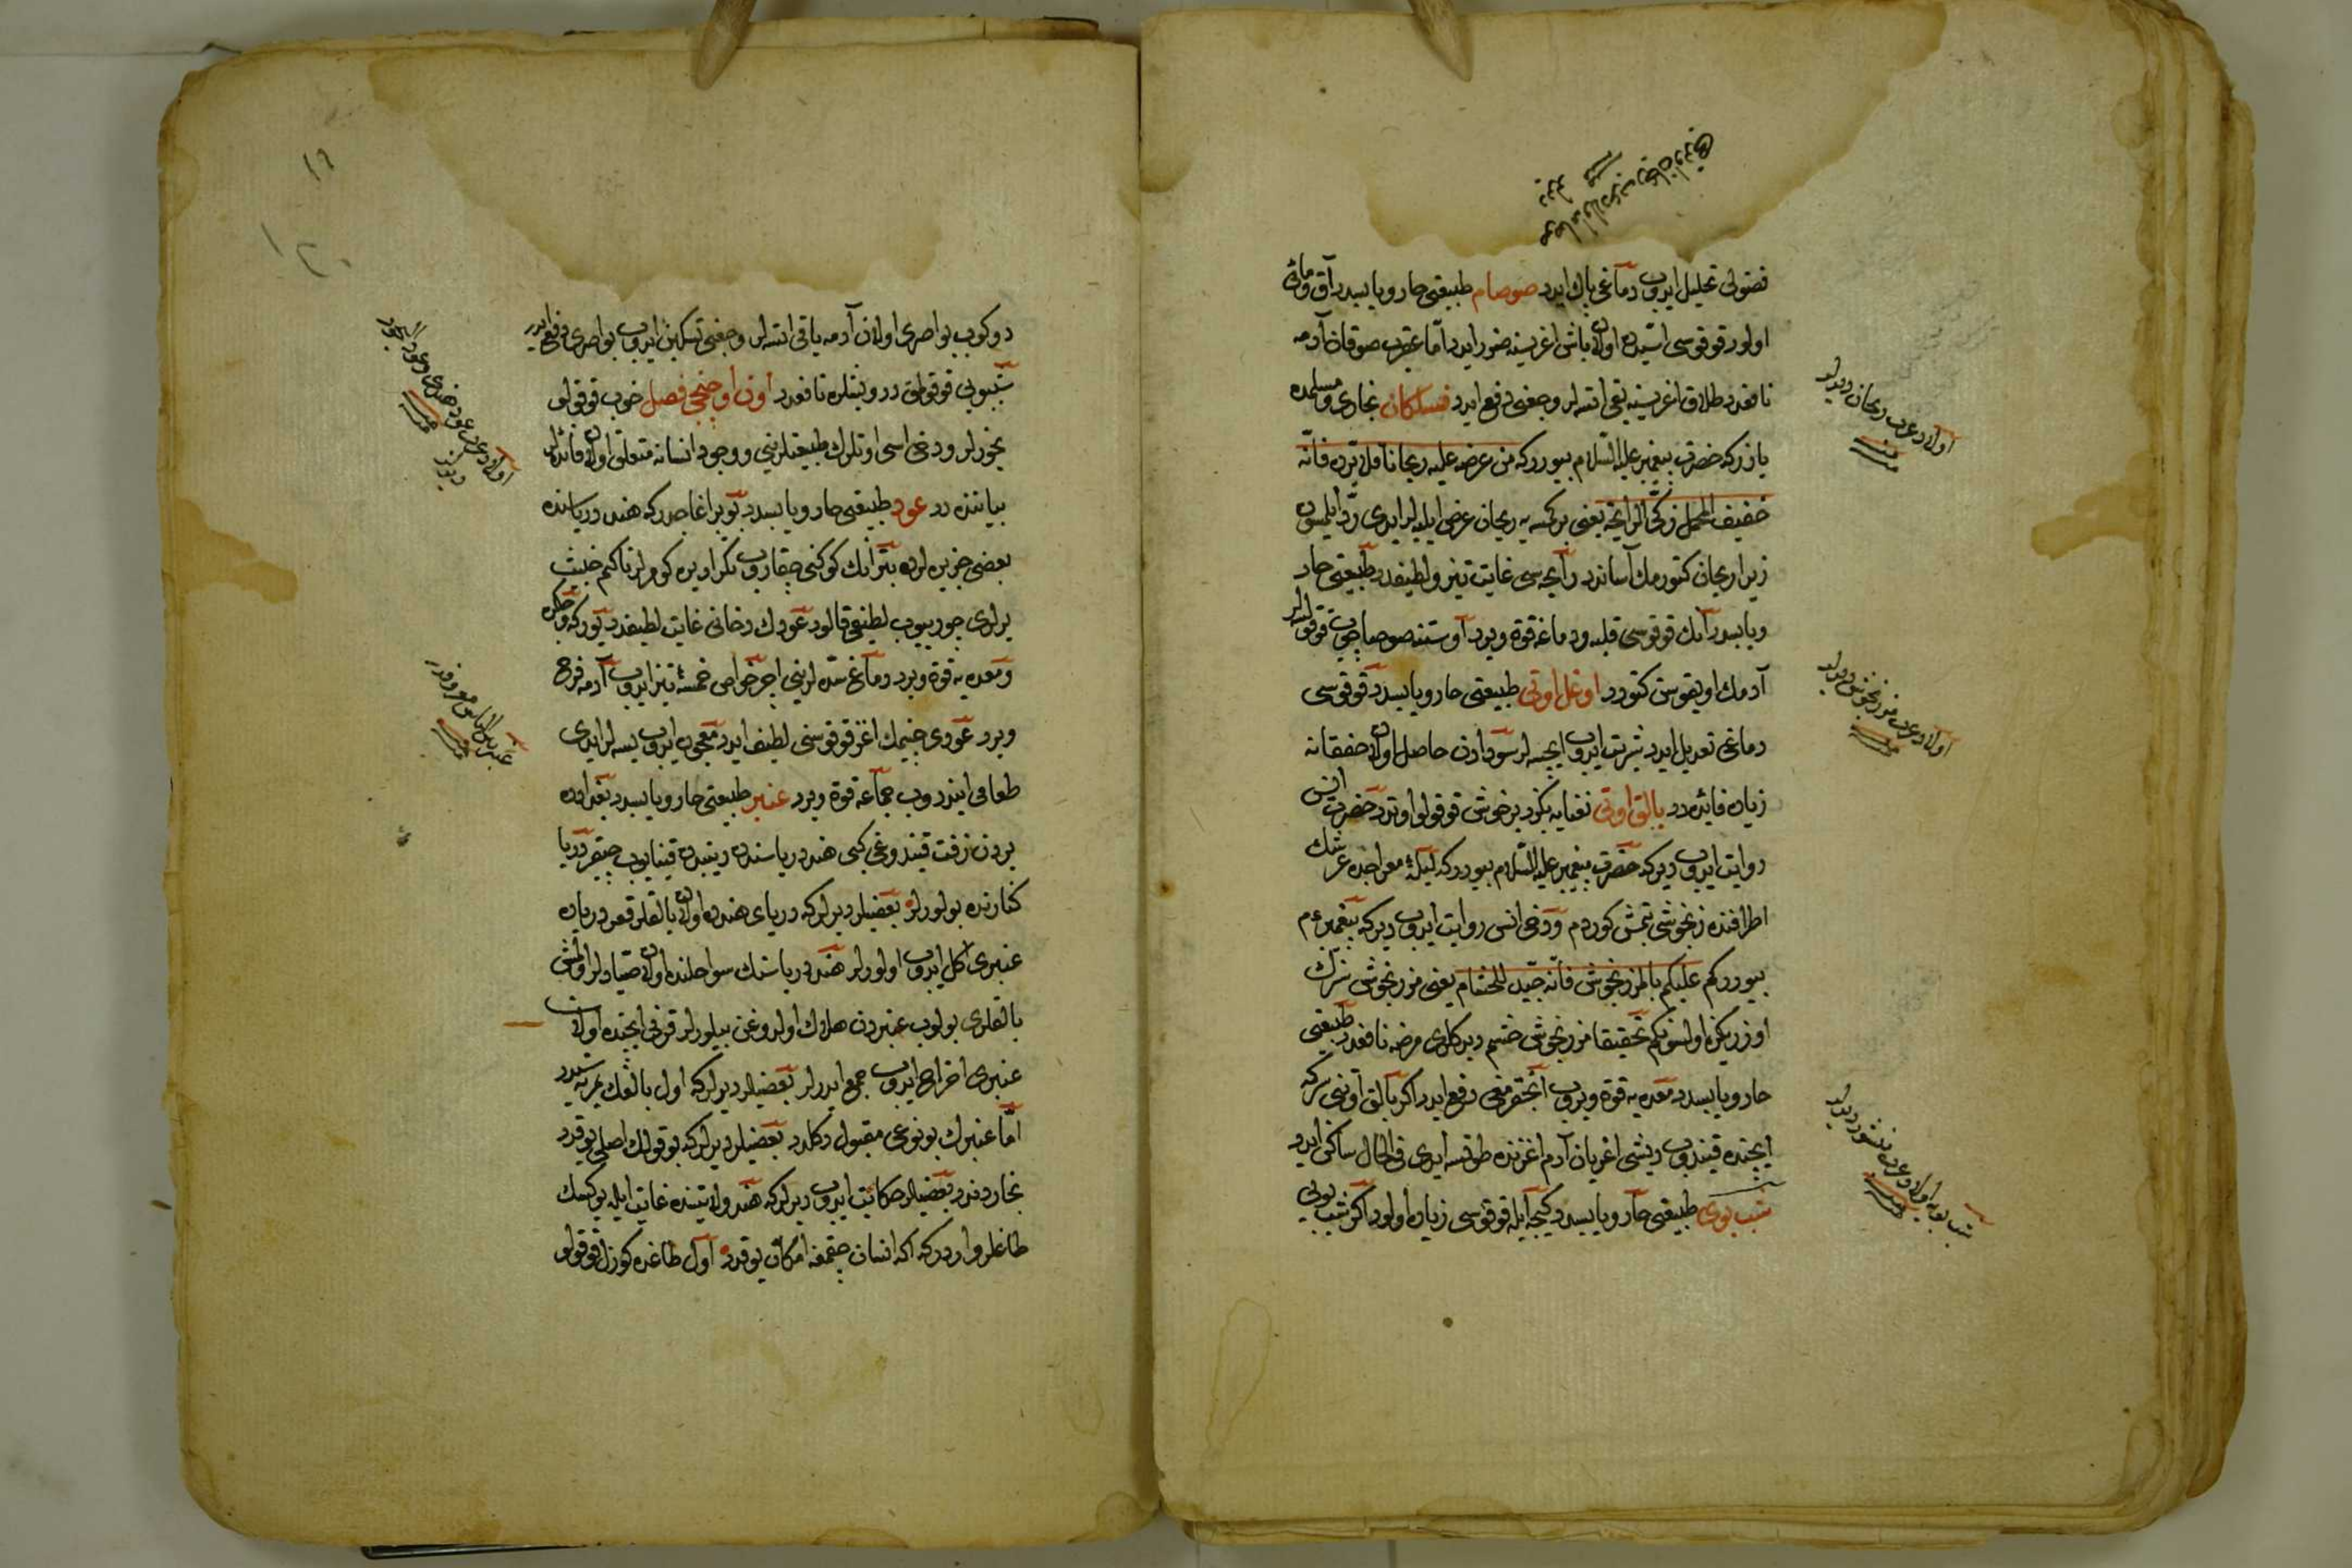 فضولی تحلیل ایدوب دماغی پاك ایدر صوصام طبیعتی حار و یابسدر آق و مائی
اولور قوقوسی اسیدن اولان باش اغریسنه ضرر ایدر اما عقرب صوقان آدمه
نافعدر طلاق اغریسنه یقی اتسه لر وجعنی دفع ایدر فسلکان بخاری و مسلمده
یازرکه حضرت پیغمبر علیه السلام بیوررکه من عرض علیه ریحانا فلا یرده فانه
خفیف المحمل زکی الرایحه یعنی بر کمسه یه ریحان عرض ایلیه لر ایدی رد ایلمسون
زیرا ریحان کتورمك آساندر رایحه سی غایت تیز و لطیفدر طبیعتی حار
و یابسدر آنك قوقوسی قلبه و دماغه قوة ویرر اوستنه صو صاچوب قوقولسه لر
آدمك اویقوسن کتورر اوغل اوتی طبیعتی حار و یابسدر قوقوسی
دماغی تعدیل ایدر شربت ایدوب ایچسه لر سودادن حاصل اولان خفقانه
زیاده فائده در بالق اوتی نعنایه بکزر بر خوش قوقولو اوتدر حضرت انس
روایت ایدوب دیرکه حضرت پیغمبر علیه السلام بیوررکه لیلة معراجده عرشك
اطرافنده مرزنجوشی بتمش کوردم و دخی انس روایت ایدوب دیرکه پیغمبر عم
بیوررکم علیکم بالمرزنجوش فانه جید للخشام یعنی مرزنجوش سزك
اوزریکزه اولسونکم تحقیقا مرزنجوشی خشم دیدکلری مرضه نافعدر طبیعتی
حار و یابسدر معده یه قوة ویروب انجقرمغی دفع ایدر اکر بالق اوتنی سرکه
ایچنده قیندوب دیشی اغریان آدم اغزنده طوقسه ایدی فی الحال ساکن ایدر
شب بوی طبیعتی حار و یابسدر کیجه ایله قوقوسی زیاده اولور اکر شب بویی
اولادر عرب ریحان دیدیلر
اولادر عرب مرزنجوش دیدیلر
شب بویه اولادر عرب منثور دیدیلر
١٩
دوکوب بواصری اولان آدمه یاقی اتسه لر وجعنی تسکین ایدوب بواصری دفع ایدر
شببویی قوقولمق درویشلره نافعدر اون اوچنجی فصل خوب قوقولو
بخورلر و دخی اسی اوتلرك طبیعتلرینی و وجود انسانه متعلق اولان فائده لر
بیاننده در عود طبیعتی حار و یابسدر بو بر اغاجدرکه هند دریاسنده
بعضی جزیره لرده بتر انك کوکنی چقاروب تکرار یره کومرلر تاکم خبیث
یرلری چوریوب لطیفی قالور عودك دخانی غایت لطیفدر یورکه و جکره
و معده یه قوة ویرر دماغ سده لرینی اچر حواس خمسه تیز ایدوب آدمه فرح
ویرر عودی چینمك اغز قوقوسنی لطیف ایدر معجون ایدوب یسه لر ایدی
طعامی ایندروب جماعه قوة ویرر عنبر طبیعتی حار و یابسدر بغدادده
یردن زفت قیندوغی کبی هند دریاسنده دیبدن قینایوب چیقر دریا
کنارنده بولورلر بعضیلر دیرلرکه دریای هندده اولان بالقلر قعر دریاده
عنبری اکل ایدوب اولورلر هند دریاسنك سواحلنده اولان صیادلر اولمش
بالقلری بولوب عنبردن هلاك اولدوغن بیلورلر قرنی ایچنده اولان
عنبری اخراج ایدوب جمع ایدرلر بعضیلر دیرلرکه اول بالغك ترسیدر
اما عنبرك بو نوعی مقبول دکلدر بعضیلر دیرلرکه بو قولك اصلی یوقدر
بخاردندر بعضیلر حکایت ایدوب دیرلرکه هند ولایتنده غایت ایله یوکسك
طاغلر واردرکه اکه انسان چقمغه امکان یوقدر اول طاغده کوزل قوقولو
اولادر عرب عود هندی و عود
دیدیلر
عنبر بین الناس معروفدر